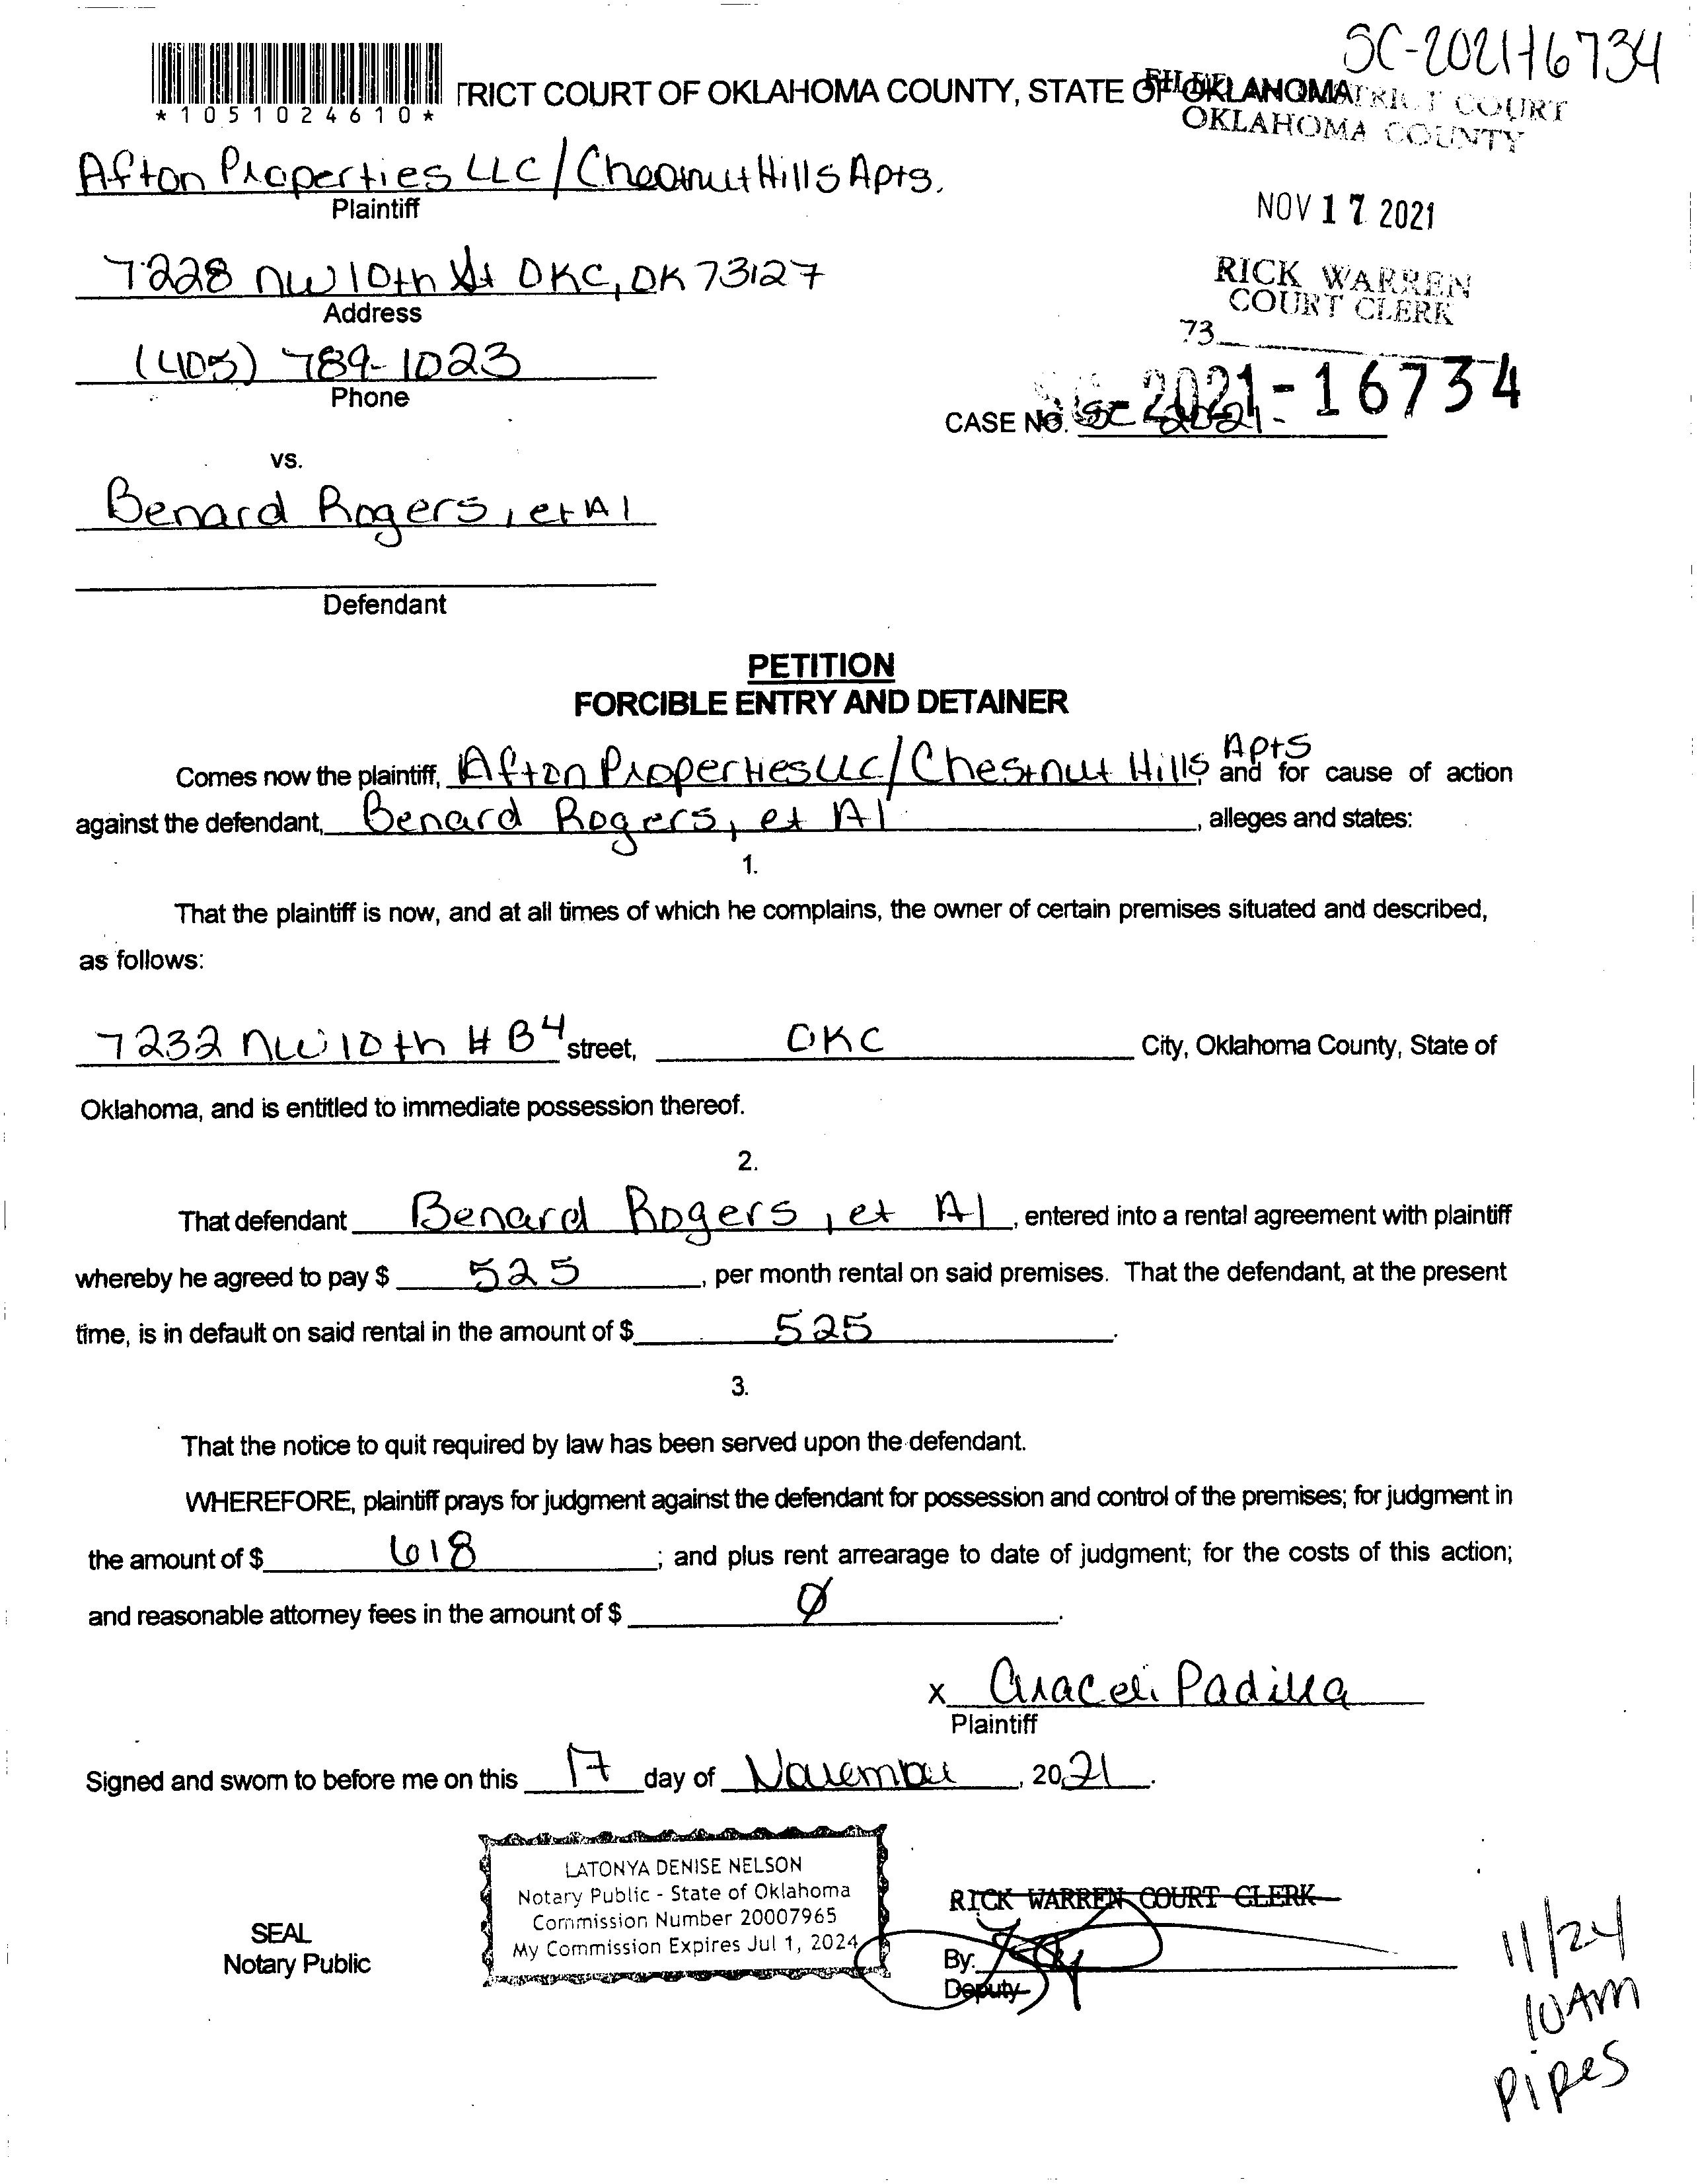 SC-2021-16734
*1051024610*
TRICT COURT OF OKLAHOMA COUNTY, STATE OF OKLAHOMA
FILED DISTRICT COURT
OKLAHOMA COUNTY
Afton Properties LLC/Chestnut Hills Apts.
Plaintiff
NOV 17 2021
7228 NW 10th St OKC, OK 73127
Address
RICK WARREN
COURT CLERK
73
(405) 789-1023
Phone
CASE NO. SC 2021-
SC-2021-16734
vs.
Benard Rogers, et Al
Defendant
PETITION
FORCIBLE ENTRY AND DETAINER
Comes now the plaintiff, Afton Properties LLC/Chestnut Hills Apts and for cause of action
against the defendant, Benard Rogers, et Al, alleges and states:
1.
That the plaintiff is now, and at all times of which he complains, the owner of certain premises situated and described,
as follows:
7232 NW 10th # B4 street, OKC City, Oklahoma County, State of
Oklahoma, and is entitled to immediate possession thereof.
2.
That defendant Benard Rogers, et Al, entered into a rental agreement with plaintiff
whereby he agreed to pay $ 525, per month rental on said premises. That the defendant, at the present
time, is in default on said rental in the amount of $ 525.
3.
That the notice to quit required by law has been served upon the defendant.
WHEREFORE, plaintiff prays for judgment against the defendant for possession and control of the premises; for judgment in
the amount of $ 618; and plus rent arrearage to date of judgment; for the costs of this action;
and reasonable attorney fees in the amount of $ Ø.
x Araceli Padilla
Plaintiff
Signed and sworn to before me on this 17 day of November, 2021.
LATONYA DENISE NELSON
Notary Public - State of Oklahoma
Commission Number 20007965
My Commission Expires Jul 1, 2024
SEAL
Notary Public
RICK WARREN, COURT CLERK
By:
Deputy
11/24
10AM
Pipes